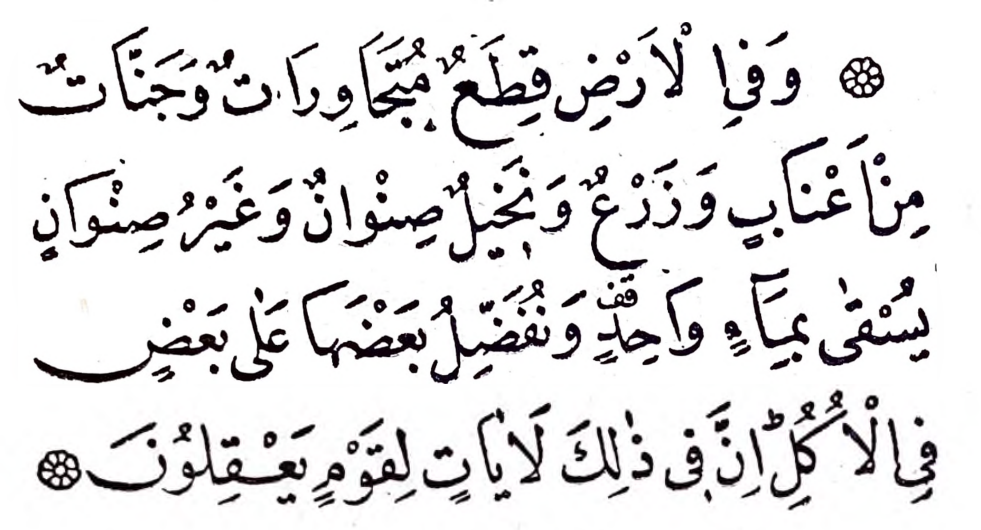 وَفِي الْاَرْضِ قِطَعٌ مُّتَجَاوِرَاتٌ وَّجَنَّاتٌ
مِنْ اَعْنَابٍ وَزَرْعٌ وَنَخِيْلٌ صِنْوَانٌ وَغَيْرُ صِنْوَانٍ
يُسْقٰى بِمَآءٍ وَاحِدٍ قف وَنُفَضِّلُ بَعْضَهَا عَلٰى بَعْضٍ
فِي الْاُكُلِ ط اِنَّ فِي ذٰلِكَ لَاٰيَاتٍ لِقَوْمٍ يَعْقِلُوْنَ